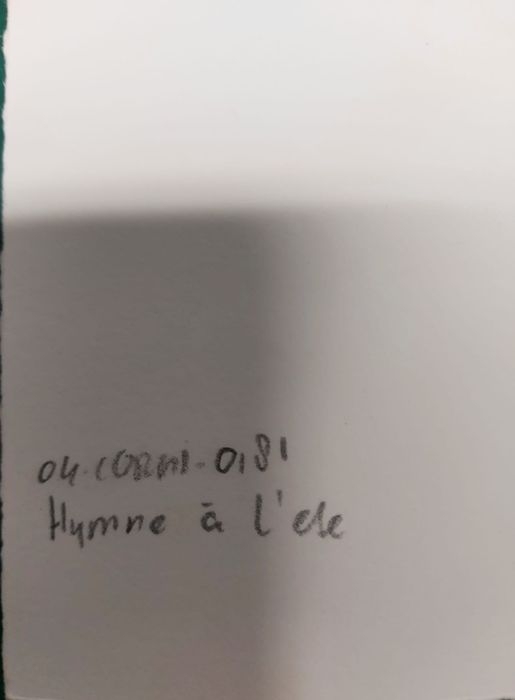 04-CORMI-0181
Hymne à l'ete